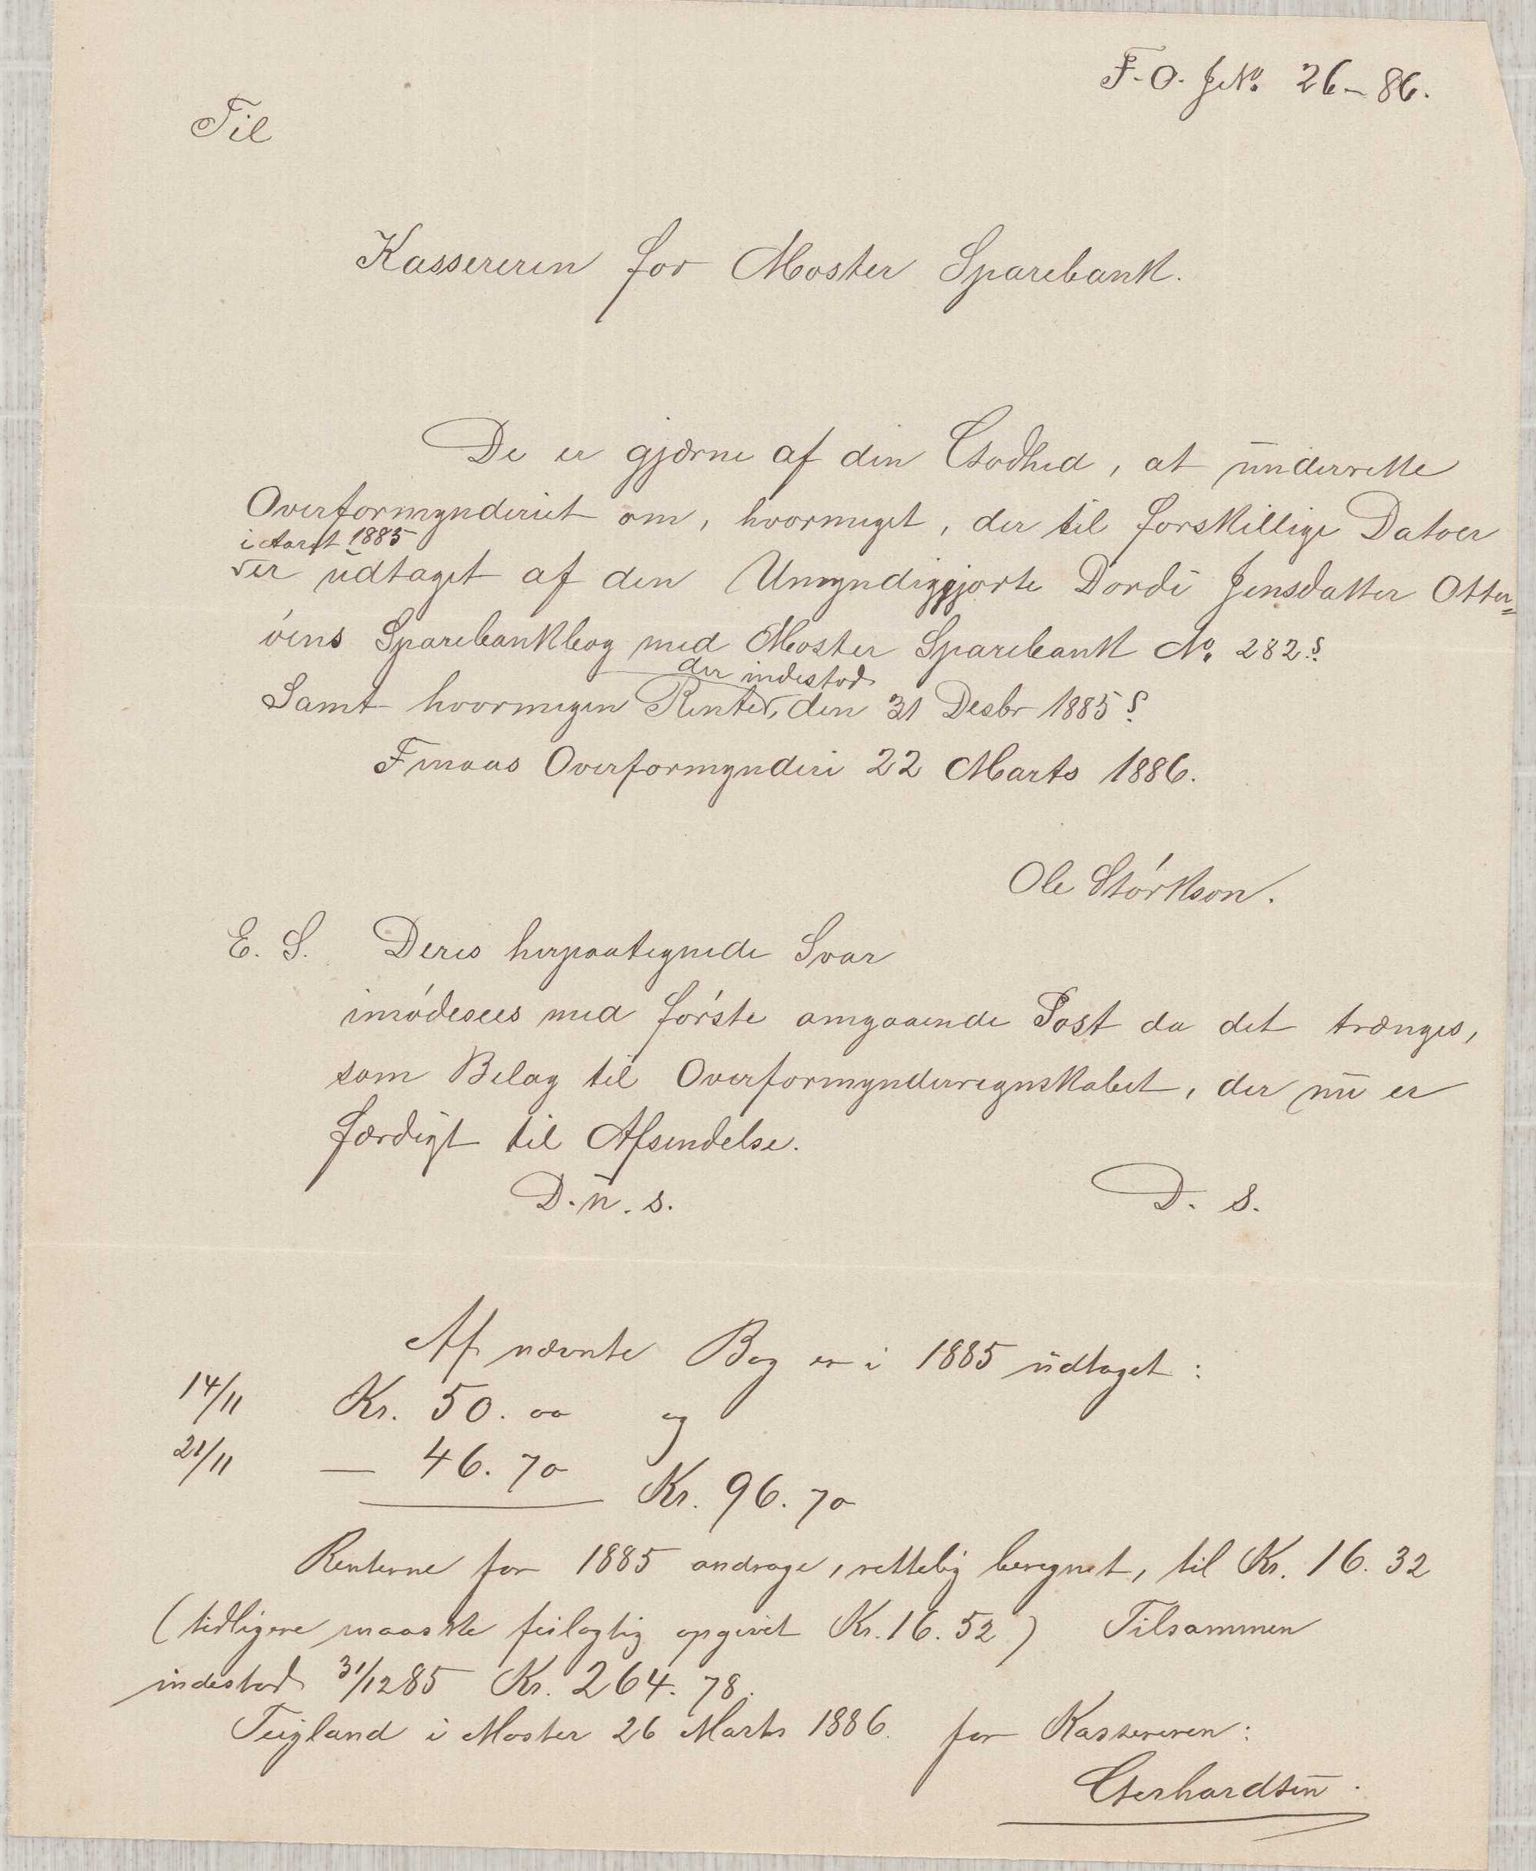 F. O. JNo. 26-86.
Til
Kassereren for Moster Sparebank.
De er gjærne af den Godhed, at underrette
Overformynderiet om, hvormeget, der til forskillige Datoer
i Aaret 1885
er udtaget af den Umyndiggjorte Dordi Jensdatter Otter=
öens Sparebankbog med Moster Sparebank No. 282.?
der indestod
Samt hvormegen Renter, den 31 Desbr 1885?
Finaas Overformynderi 22 Marts 1886.
Ole Störkson.
E. S. Deres herpaategnede Svar
imödesees med förste omgaaende Post da det trænges,
som Belag til Overformynderregnskabet, der nu er
færdigt til Afsendelse.
D. u. s. D. S.
Af nævnte Bog er i 1885 udtaget:
14/11 Kr. 50. 00 og
21/11 — 46. 70
Kr. 96. 70
Renterne for 1885 andrage, rettelig beregnet, til Kr. 16. 32
(tidligere maaske feilagtig opgivet Kr. 16. 52) Tilsammen
indestod 31/12 85 Kr. 264. 78.
Teigland i Moster 26 Marts 1886. for Kassereren:
Gerhardsen.